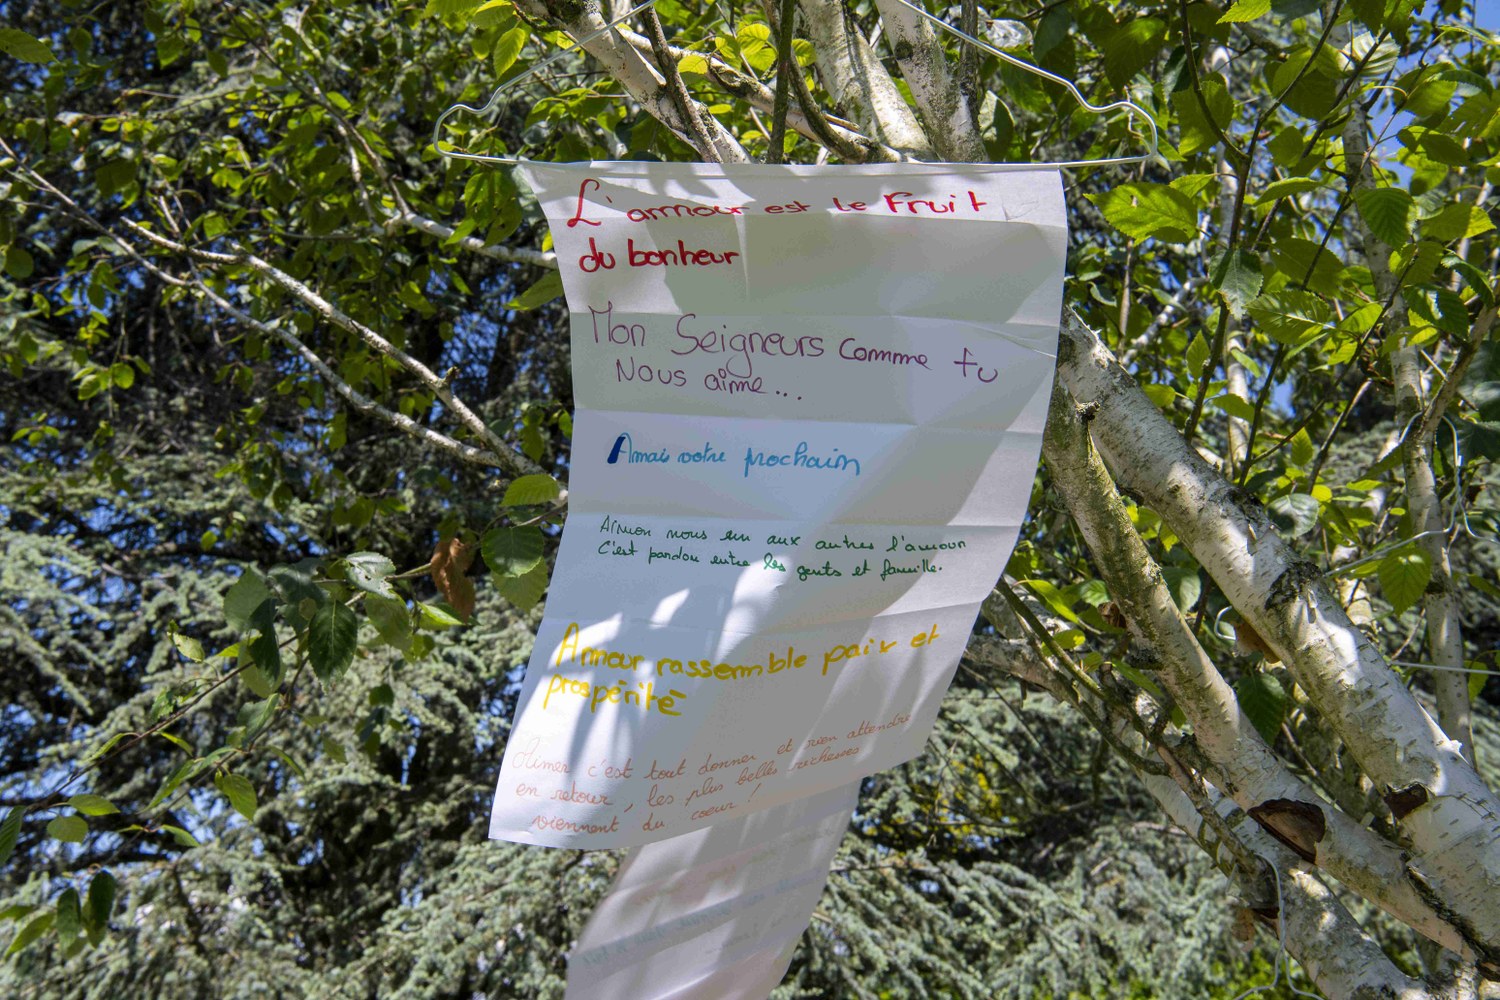 L'amour est le fruit
du bonheur
Mon Seigneurs comme tu
Nous aime...
Amais votre prochain
Aimon nous eun aux autres l'amour
C'est pardon entre les gents et famille.
Amour rassemble paix et
prospérité
Aimer c'est tout donner et rien attendre
en retour, les plus belles richesses
viennent du coeur !